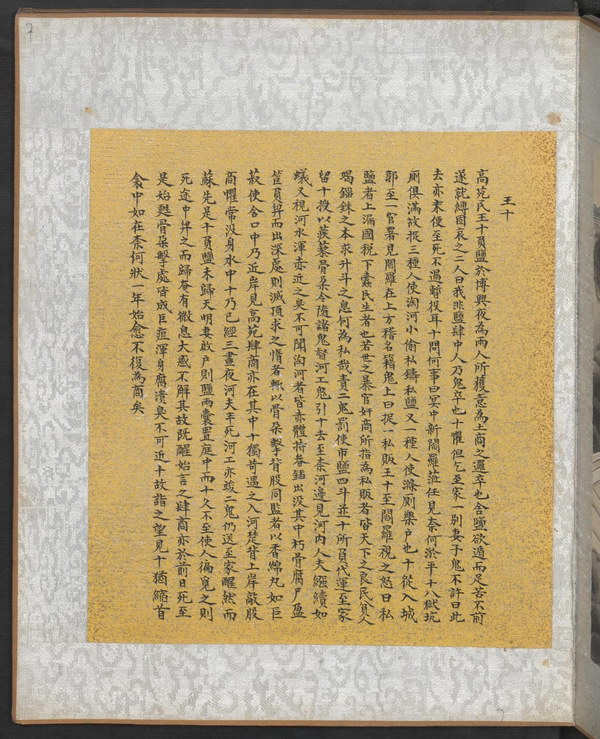 王十
高苑民王十負鹽於博興夜為兩人所獲意為土商之邏卒也舍鹽欲遁而足苦不前
遂就縛固哀之二人曰我非鹽肆中人乃鬼卒也十懼但乞至家一別妻子鬼不許曰此
去亦未便至死不過暫役耳十問何事曰冥中新閻羅蒞任見奈何淤平十八獄坑
厠俱滿故捉三種人使淘河小偷私鑄私鹽又一種人使滌厠樂户也十從入城
郭至一官署見閻羅在上方稽名籍鬼上曰捉一私販王十至閻羅視之怒曰私
鹽者上漏國稅下蠹民生者也若世之暴官奸商所指為私販者皆天下之良民貧人
竭錙銖之本求升斗之息何為私哉責二鬼罰使市鹽四斗並十所負代運至家
留十授以蒺藜骨朵令隨諸鬼督河工鬼引十去至奈河邊見河內人夫繦續如
蟻又視河水渾赤近之臭不可聞淘河者皆赤體持畚鍤出沒其中朽骨腐尸盈
筐負舁而出深處則滅頂求之惰者輒以骨朵擊背股同監者以香綿丸如巨
菽使含口中乃近岸見高苑肆商亦在其中十獨苛遇之入河楚背上岸敲股
商懼常沒身水中十乃已經三晝夜河夫半死河工亦竣二鬼仍送至家醒然而
蘇先是十負鹽未歸天明妻啟戶則鹽兩囊置庭中而十久不至使人徧覓之則
死途中舁之而歸奄有微息大惑不解其故既醒始言之肆商亦於前日死至
是始甦骨朵擊處皆成巨疽渾身腐潰臭不可近十故詣之望見十猶縮首
衾中如在奈何狀一年始愈不復為商矣